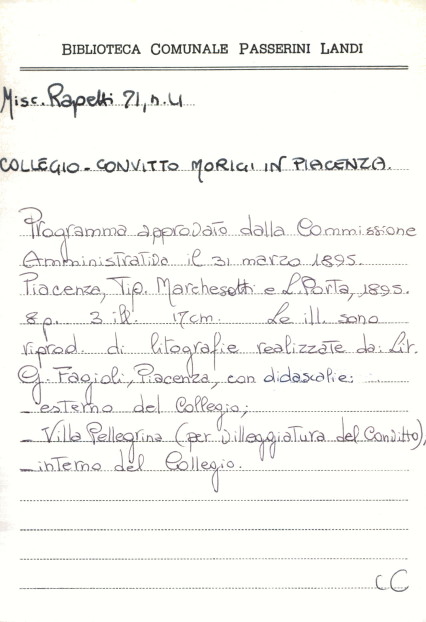 BIBLIOTECA COMUNALE PASSERINI LANDI
Misc. Rapetti 71, n. 4
COLLEGIO-CONVITTO MORIGI IN PIACENZA.
Programma approvato dalla Commissione
Amministrativa il 31 marzo 1895.
Piacenza, Tip. Marchesotti e L. Porta, 1895.
8 p. 3 ill. 17cm. Le ill. sono
riprod. di litografie realizzate da: Lit.
G. Fagioli, Piacenza, con didascalie:
- esterno del Collegio;
- Villa Pellegrina (per villeggiatura del Convitto),
- interno del Collegio.
CC